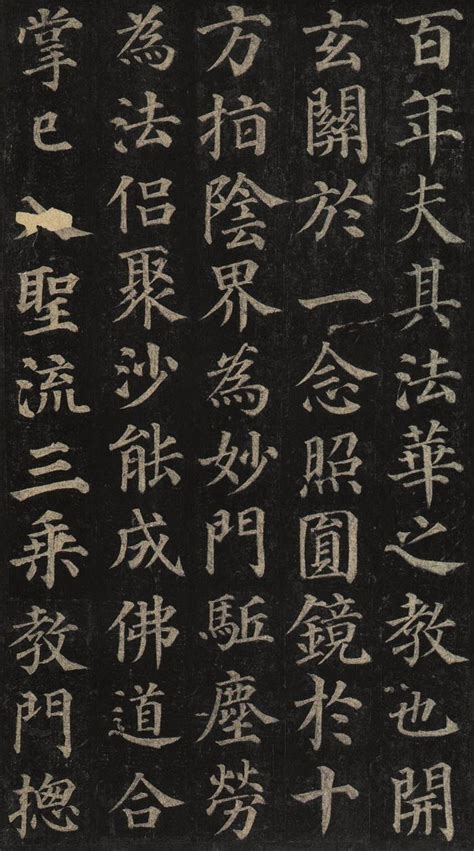 百年夫其法華之教也開
玄關於一念照圎鏡扵十
方指陰界為妙門駈塵勞
為法侶聚沙能成佛道合
掌已聖流三乗教門揔